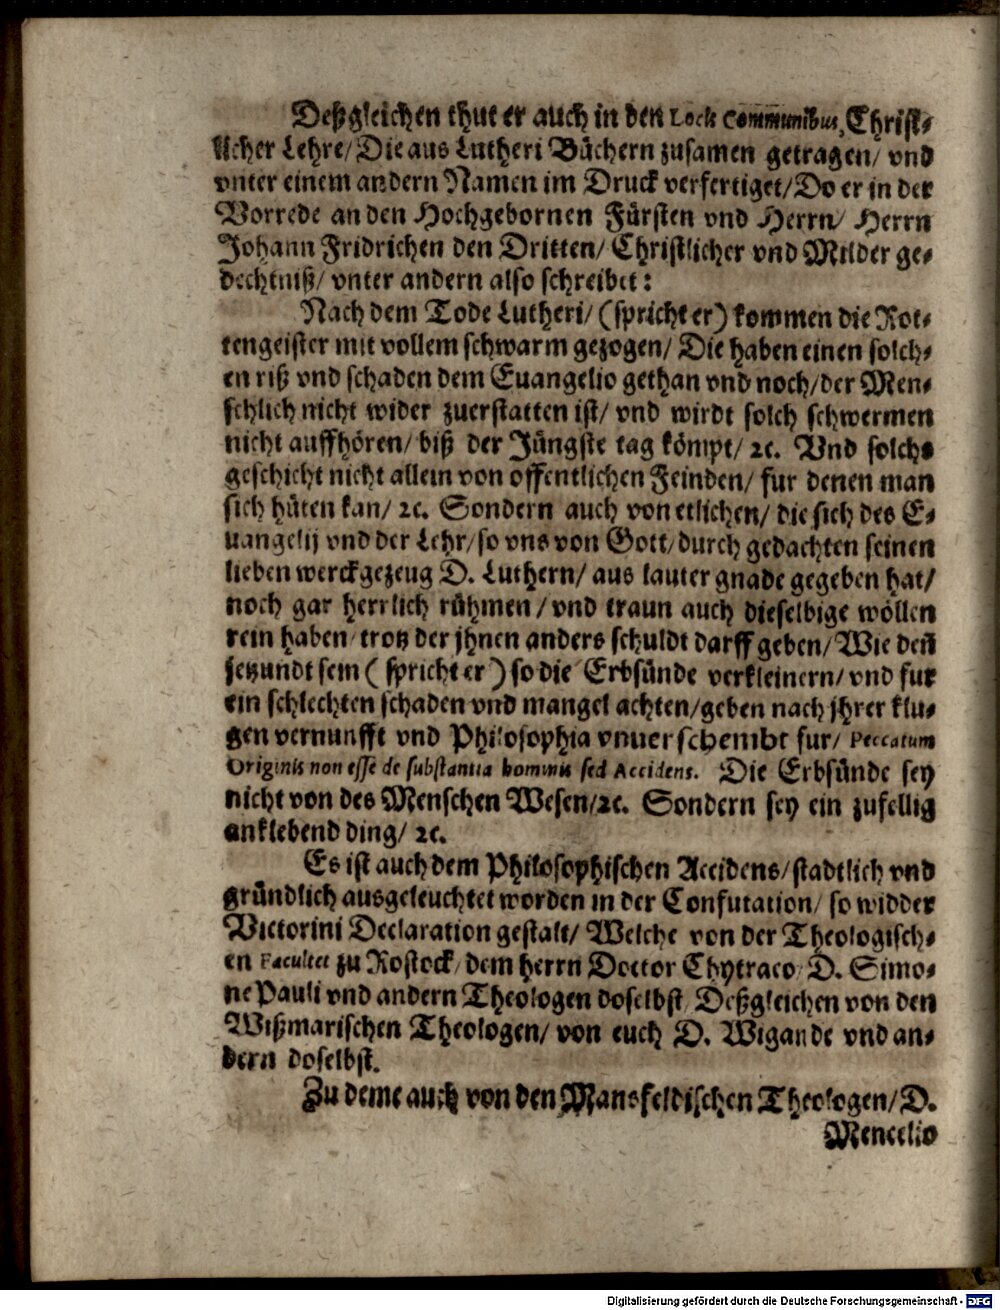 Deßgleichen thut er auch in den Locis Communibus, Christ⸗
licher Lehre/ Die aus Lutheri Büchern zusamen getragen/ vnd
vnter einem andern Namen im Druck verfertiget/ Do er in der
Vorrede an den Hochgebornen Fürsten vnd Herrn/ Herrn
Johann Fridrichen den Dritten/ Christlicher vnd Milder ge⸗
dechtniß/ vnter andern also schreibet:
Nach dem Tode Lutheri/ (spricht er) kommen die Rot⸗
tengeister mit vollem schwarm gezogen/ Die haben einen solch⸗
en riß vnd schaden dem Euangelio gethan vnd noch/ der Men⸗
schlich nicht wider zuerstatten ist/ vnd wirdt solch schwermen
nicht auffhören/ biß der Jüngste tag kömpt/ ꝛc. Vnd solchs
geschicht nicht allein von offentlichen Feinden/ fur denen man
sich hüten kan/ ꝛc. Sondern auch von etlichen/ die sich des E⸗
uangelij vnd der Lehr/ so vns von Gott/ durch gedachten seinen
lieben werckgezeug D. Luthern/ aus lauter gnade gegeben hat/
noch gar herrlich rühmen/ vnd traun auch dieselbige wöllen
rein haben/ trotz der jhnen anders schuldt darff geben/ Wie deñ
jetzundt sein (spricht er) so die Erbsünde verkleinern/ vnd fur
ein schlechten schaden vnd mangel achten/ geben nach jhrer klu⸗
gen vernunfft vnd Philosophia vnuerschembt fur/ Peccatum
Originis non esse de substantia hominis sed Accidens. Die Erbsünde sey
nicht von des Menschen Wesen/ ꝛc. Sondern sey ein zufellig
anklebend ding/ ꝛc.
Es ist auch dem Philosophischen Accidens/ stadtlich vnd
gründlich ausgeleuchtet worden in der Confutation/ so widder
Victorini Declaration gestalt/ Welche von der Theologisch⸗
en Facultet zu Rostock/ dem herrn Doctor Chytraeo/ D. Simo⸗
ne Pauli vnd andern Theologen doselbst/ Deßgleichen von den
Wißmarischen Theologen/ von euch D. Wigande vnd an⸗
dern doselbst.
Zu deme auch von den Mansfeldischen Theologen/ D.
Mencelio
Digitalisierung gefördert durch die Deutsche Forschungsgemeinschaft - DFG